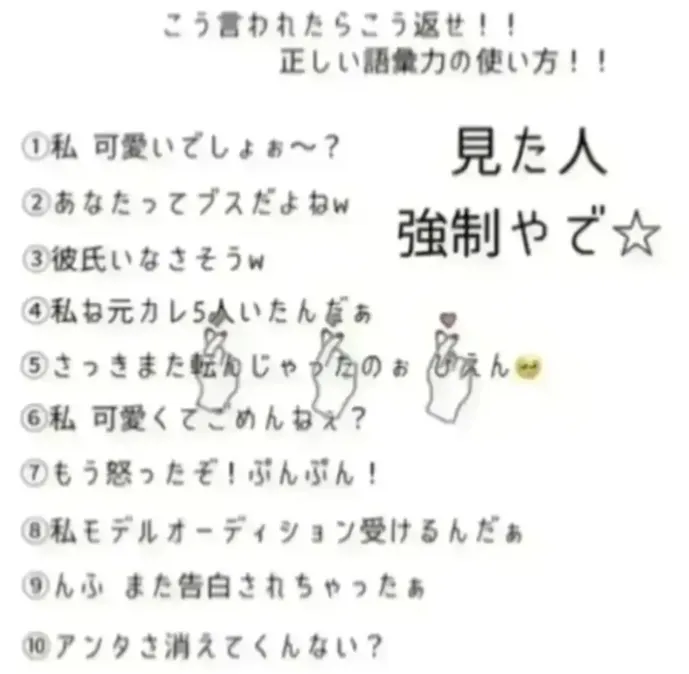 こう言われたらこう返せ！！
正しい語彙力の使い方！！
見た人
強制やで☆
①私 可愛いでしょぉ〜？
②あなたってブスだよねw
③彼氏いなさそうw
④私ね元カレ5人いたんだぁ
⑤さっきまた転んじゃったのぉ ぴえん🥺
⑥私 可愛くてごめんねぇ？
⑦もう怒ったぞ！ぷんぷん！
⑧私モデルオーディション受けるんだぁ
⑨んふ また告白されちゃったぁ
⑩アンタさ消えてくんない？